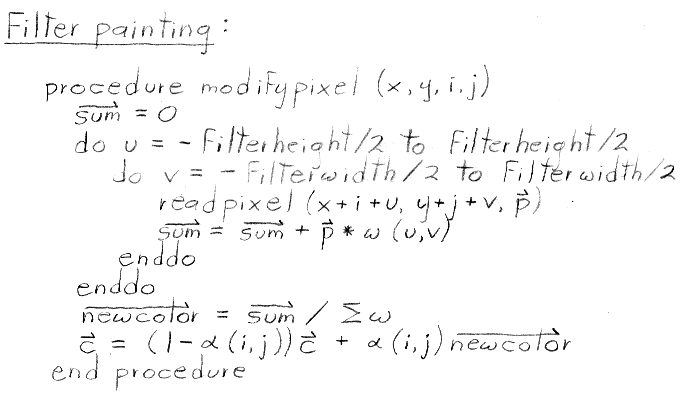 Filter painting:
procedure modifypixel (x, y, i, j)
s⃗um⃗ = 0
do u = - Filterheight/2 to Filterheight/2
do v = - Filterwidth/2 to Filterwidth/2
readpixel (x+i+u, y+j+v, p⃗)
s⃗um⃗ = s⃗um⃗ + p⃗ * ω (u,v)
enddo
enddo
newcolor⃗ = s⃗um⃗ / Σω
c⃗ = (1-α(i,j))c⃗ + α(i,j) newcolor⃗
end procedure